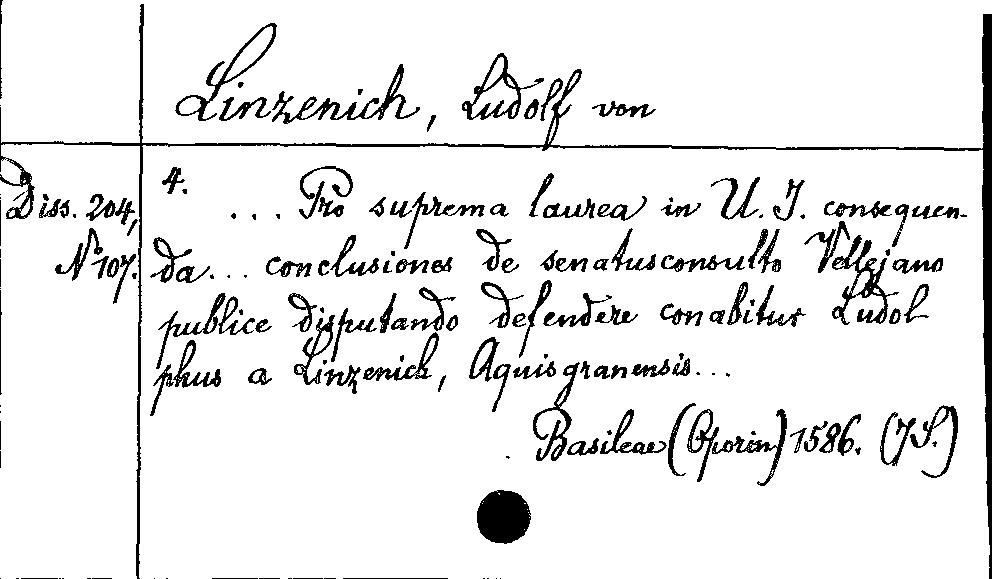 Linzenich, Ludolf von
Diss. 204,
No 107.
4.
... Pro suprema laurea in U. J. consequen-
da... conclusiones de senatusconsulto Vellejano
publice disputando defendere conabitur Ludol
phus a Linzenich, Aquisgranensis...
Basileae (Oporin) 1586. (7 S.)